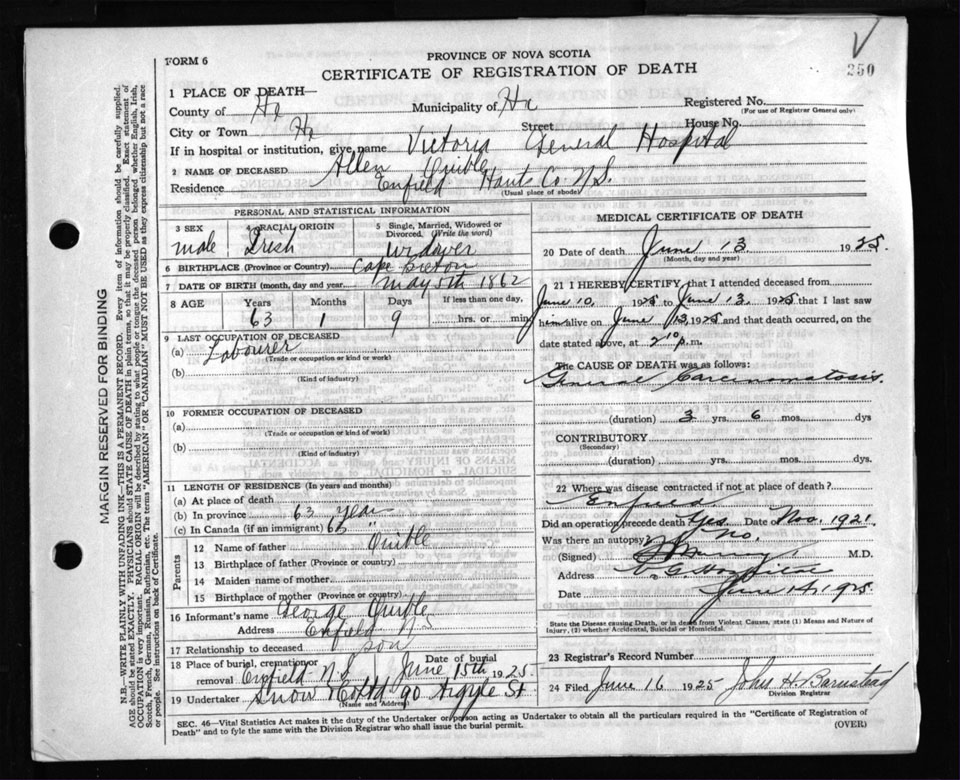 FORM 6
PROVINCE OF NOVA SCOTIA
CERTIFICATE OF REGISTRATION OF DEATH
250
1 PLACE OF DEATH—
County of Hx Municipality of Hx Registered No.
(For use of Registrar General only)
City or Town Hx Street House No.
If in hospital or institution, give name Victoria General Hospital
2 NAME OF DECEASED Allen Quible
Residence Enfield Hants Co. N.S.
(Usual place of abode)
PERSONAL AND STATISTICAL INFORMATION
3 SEX 4 RACIAL ORIGIN 5 Single, Married, Widowed or Divorced. (Write the word)
male Irish widower
6 BIRTHPLACE (Province or Country) Cape Breton
7 DATE OF BIRTH (month, day and year) May 5th 1862
8 AGE Years Months Days If less than one day,
63 1 9 hrs. or min.
9 LAST OCCUPATION OF DECEASED
(a) Labourer
(Trade or occupation or kind or work)
(b)
(Kind of industry)
10 FORMER OCCUPATION OF DECEASED
(a)
(Trade or occupation or kind of work)
(b)
(Kind of industry)
11 LENGTH OF RESIDENCE (In years and months)
(a) At place of death
(b) In province 63 years
(c) In Canada (if an immigrant) 63 "
Parents
12 Name of father Quible
13 Birthplace of father (Province or country)
14 Maiden name of mother
15 Birthplace of mother (Province or country)
16 Informant's name George Quible
Address Enfield
17 Relationship to deceased son
18 Place of burial, cremation or removal Enfield N.S. Date of burial June 15th 1925
19 Undertaker Snow & Co Ltd 90 Argyle St
(Name and Address)
MEDICAL CERTIFICATE OF DEATH
20 Date of death June 13 1925.
(Month, day and year)
21 I HEREBY CERTIFY, that I attended deceased from
June 10, 1925 to June 13 1925 that I last saw
him alive on June 13, 1925 and that death occurred, on
date stated above, at 2 10 p.m.
The CAUSE OF DEATH was as follows:
General Carcinomatosis.
(duration) 3 yrs. 6 mos. dys
CONTRIBUTORY
(Secondary)
(duration) yrs. mos. dys.
22 Where was disease contracted if not at place of death?
Enfield
Did an operation precede death Yes. Date of Nov. 1921
Was there an autopsy? No.
(Signed) M.D.
Address V. G. Hospital
Date June 14, 1925.
State the Disease causing Death, or in death from Violent Causes, state (1) Means and Nature of
Injury, (2) whether Accidental, Suicidal or Homicidal.
23 Registrar's Record Number
24 Filed June 16 1925 John H. Barnstead
Division Registrar
SEC. 46—Vital Statistics Act makes it the duty of the Undertaker or person acting as Undertaker to obtain all the particulars required in the "Certificate of Registration of
Death" and to fyle the same with the Division Registrar who shall issue the burial permit. (OVER)
MARGIN RESERVED FOR BINDING
N.B.—WRITE PLAINLY WITH UNFADING INK—THIS IS A PERMANENT RECORD. Every item of information should be carefully supplied.
AGE should be stated EXACTLY. PHYSICIANS should STATE CAUSE OF DEATH in plain terms, so that it may be properly classified. Exact statement of
OCCUPATION is very important. RACIAL ORIGIN will be described by stating to what people or tongue the deceased person belonged whether English, Irish,
Scotch, French, German, Russian, Ruthenian, etc. The terms "AMERICAN" or "CANADIAN" MUST NOT BE USED as they express citizenship but not a race
or people. See instructions on back of Certificate.